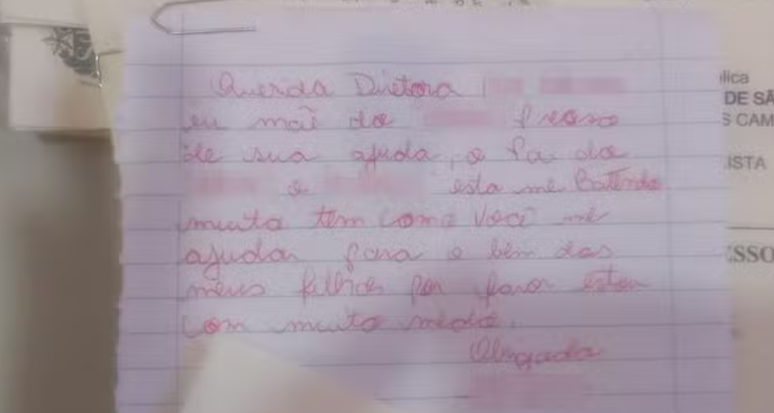 Querida Diretora
eu mãe do Preciso
de sua ajuda, o Pai do
e esta me Batendo
muito tem como Você me
ajudar para o bem dos
meus filhos por favor estou
com muito medo.
Obrigada
lica
DE SÃ
S CAM
ISTA
ESSO